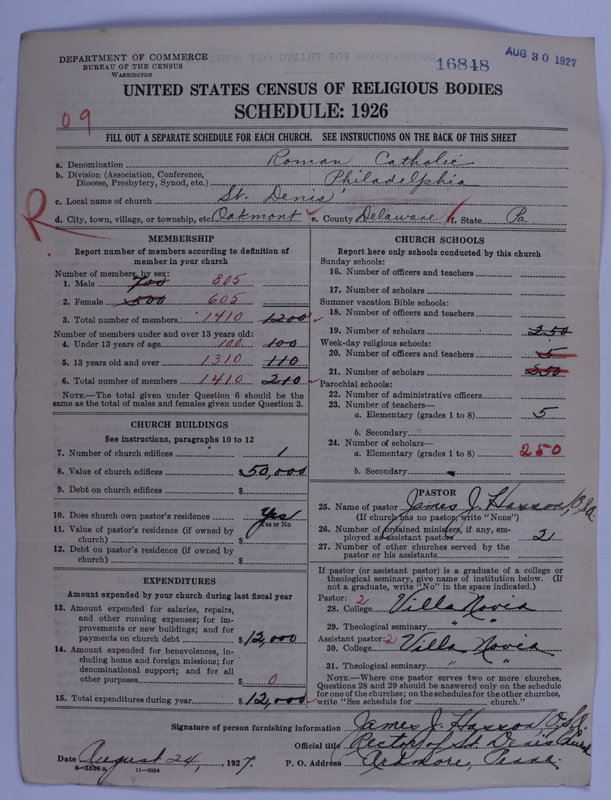 DEPARTMENT OF COMMERCE
BUREAU OF THE CENSUS
WASHINGTON
16848
AUG 30 1927
UNITED STATES CENSUS OF RELIGIOUS BODIES
SCHEDULE: 1926
09
FILL OUT A SEPARATE SCHEDULE FOR EACH CHURCH. SEE INSTRUCTIONS ON THE BACK OF THIS SHEET
a. Denomination Roman Catholic
b. Division (Association, Conference, Diocese, Presbytery, Synod, etc.) Philadelphia
c. Local name of church St. Denis'
R
d. City, town, village, or township, etc. Oakmont e. County Delaware f. State Pa
MEMBERSHIP
Report number of members according to definition of
member in your church
Number of members, by sex:
1. Male 700 805
2. Female 500 605
3. Total number of members 1410 1200
Number of members under and over 13 years old:
4. Under 13 years of age 100 100
5. 13 years old and over 1310 110
6. Total number of members 1410 210
NOTE.—The total given under Question 6 should be
same as the total of males and females given under Question 3.
CHURCH BUILDINGS
See instructions, paragraphs 10 to 12
7. Number of church edifices 1
8. Value of church edifices $50,000
9. Debt on church edifices $
10. Does church own pastor's residence Yes
Yes or No
11. Value of pastor's residence (if owned by
church) $
12. Debt on pastor's residence (if owned by
church) $
EXPENDITURES
Amount expended by your church during last fiscal year
13. Amount expended for salaries, repairs,
and other running expenses; for im-
provements or new buildings; and for
payments on church debt $12,000
14. Amount expended for benevolences, in-
cluding home and foreign missions; for
denominational support; and for all
other purposes $ 0
15. Total expenditures during year $12,000
CHURCH SCHOOLS
Report here only schools conducted by this church
Sunday schools:
16. Number of officers and teachers
17. Number of scholars
Summer vacation Bible schools:
18. Number of officers and teachers
19. Number of scholars 250
Week-day religious schools:
20. Number of officers and teachers 5
21. Number of scholars 250
Parochial schools:
22. Number of administrative officers
23. Number of teachers—
a. Elementary (grades 1 to 8) 5
b. Secondary
24. Number of scholars—
a. Elementary (grades 1 to 8) 250
b. Secondary
PASTOR
25. Name of pastor James J.
(If church has no pastor, write "None")
26. Number of ordained ministers, if any, em-
ployed as assistant pastors 2
27. Number of other churches served by the
pastor or his assistants
If pastor (or assistant pastor) is a graduate of a college or
theological seminary, give name of institution below. (If
not a graduate, write "No" in the space indicated.)
Pastor: 2
28. College Villa Novia
29. Theological seminary " "
Assistant pastor: 2
30. College Villa Novia
31. Theological seminary " "
NOTE.—Where one pastor serves two or more churches,
Questions 28 and 29 should be answered only on the schedule
for one of the churches; on the schedules for the other churches,
write "See schedule for church."
Signature of person furnishing information James J. O.S.A.
Official title Rector of St. Denis Church
Date August 24, 1927. P. O. Address Ardmore, Penna.
11—9024